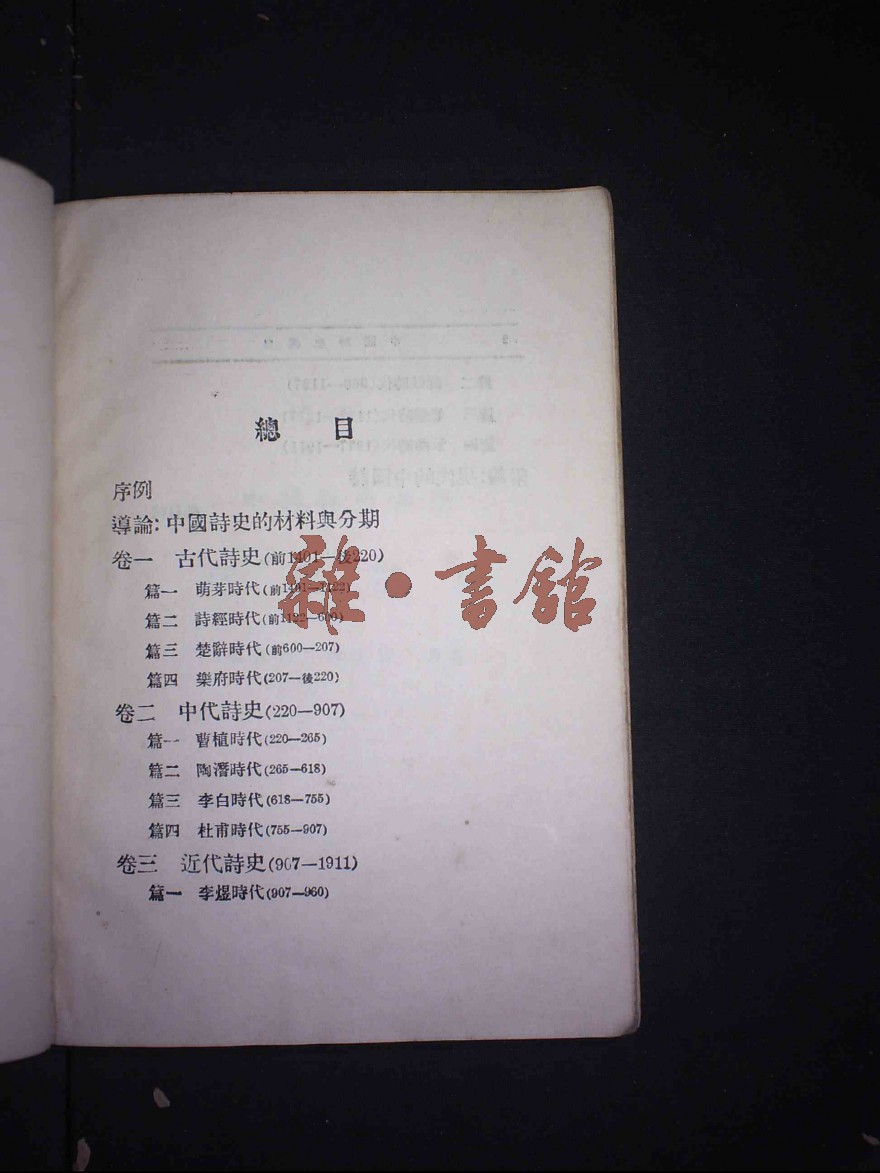 總目
序例
導論：中國詩史的材料與分期
卷一 古代詩史(前1401—後220)
篇一 萌芽時代(前1401—1122)
篇二 詩經時代(前1122—600)
篇三 楚辭時代(前600—207)
篇四 樂府時代(207—後220)
卷二 中代詩史(220—907)
篇一 曹植時代(220—265)
篇二 陶潛時代(265—618)
篇三 李白時代(618—755)
篇四 杜甫時代(755—907)
卷三 近代詩史(907—1911)
篇一 李煜時代(907—960)
雜·書館